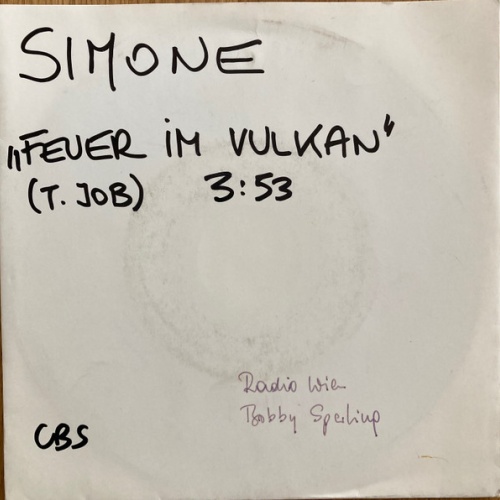 SIMONE
„FEUER iM VULKAN“
(T. JOB) 3:53
Radio Wien
Bobby Sperling
CBS